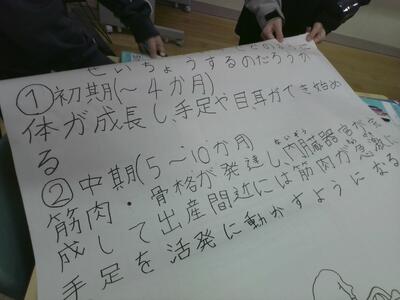 どのように
せいちょうするのだろうか
①初期(〜4か月)
体が成長し手足や目耳ができ始め
る
②中期(5〜10か月)
筋肉・骨格が発達し、内臓器官が完
ないぞう
成して出産間近には筋肉が急激に
手足を活発に動かすようになる